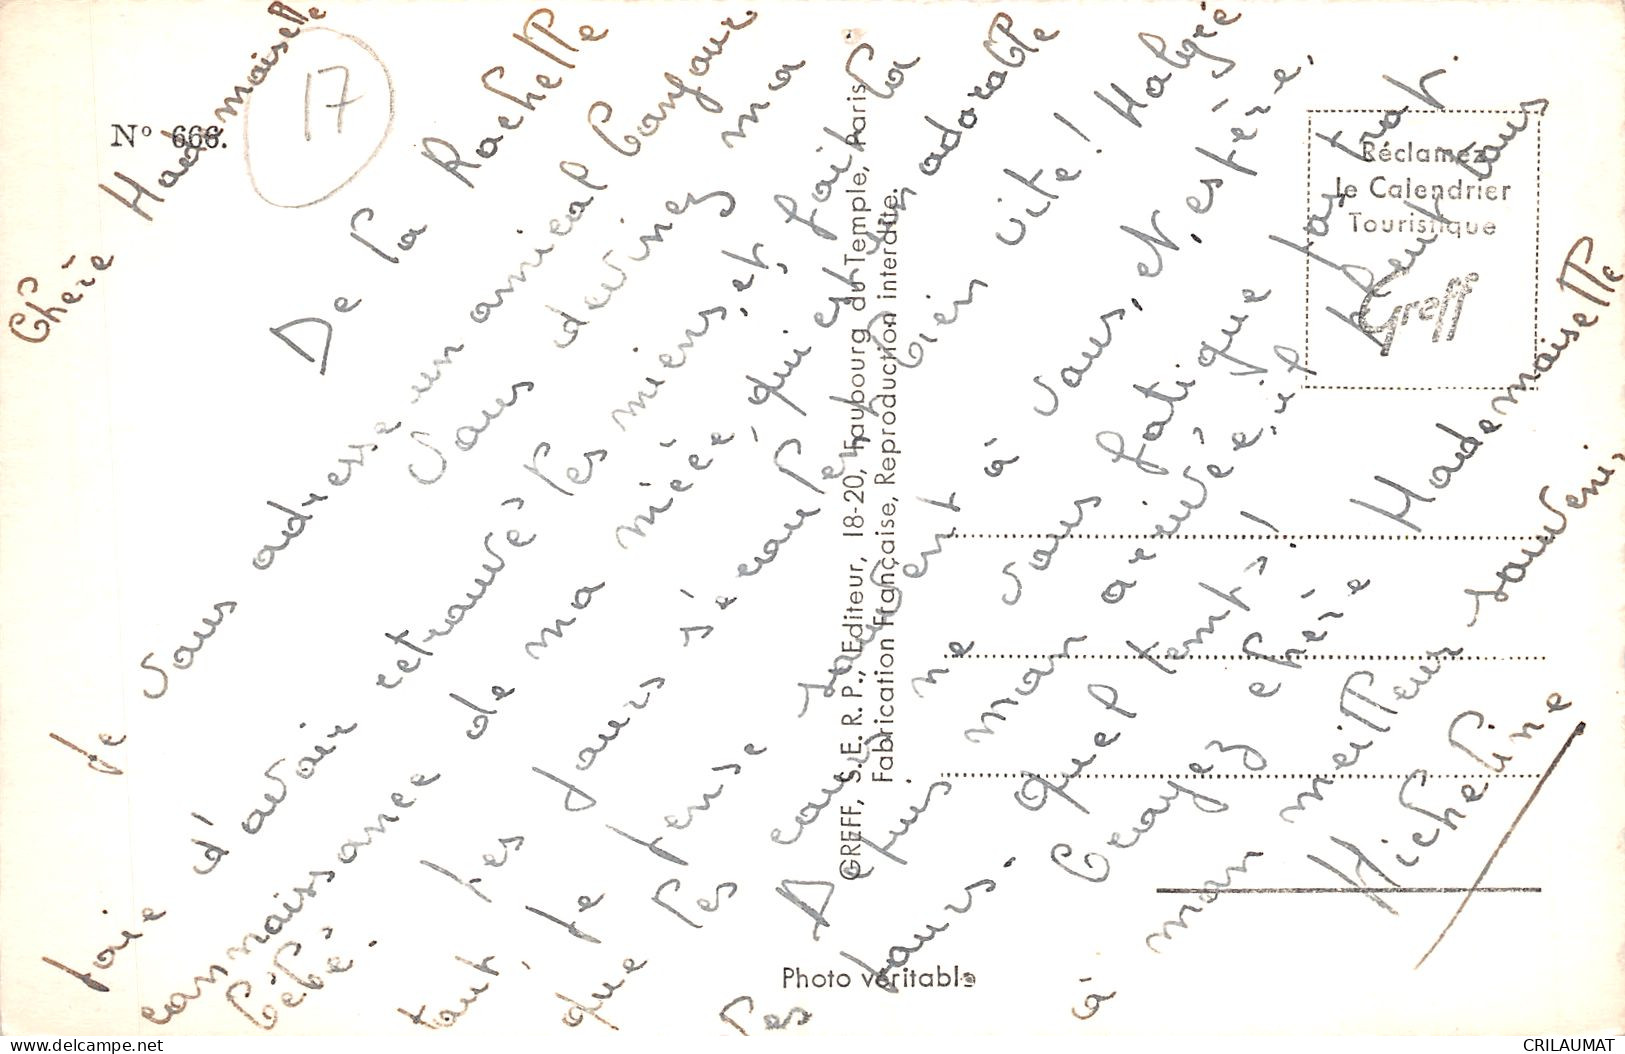 Chère Mademoiselle
De la Rochelle
Je vous adresse un amical bonjour
Vous devinez ma
joie d'avoir retrouvé les miens, et, fait la
connaissance de ma nièce, qui est un adorable
bébé.
Les jours s'écoulent bien vite! Malgré
tout, je pense souvent à vous, et, espère,
que les cours ne vous fatigue pas trop.
Depuis mon arrivée, il pleut tous
les jours. Quel temps!
Croyez chère Mademoiselle
à mon meilleur souvenir,
Micheline
N° 666.
17
GREFF, S.E.R.P., Editeur, 18-20, Faubourg du Temple, Paris
Fabrication Française, Reproduction interdite.
Réclamez
le Calendrier
Touristique
Greff
Photo véritable
delcampe.net
CRILAUMAT